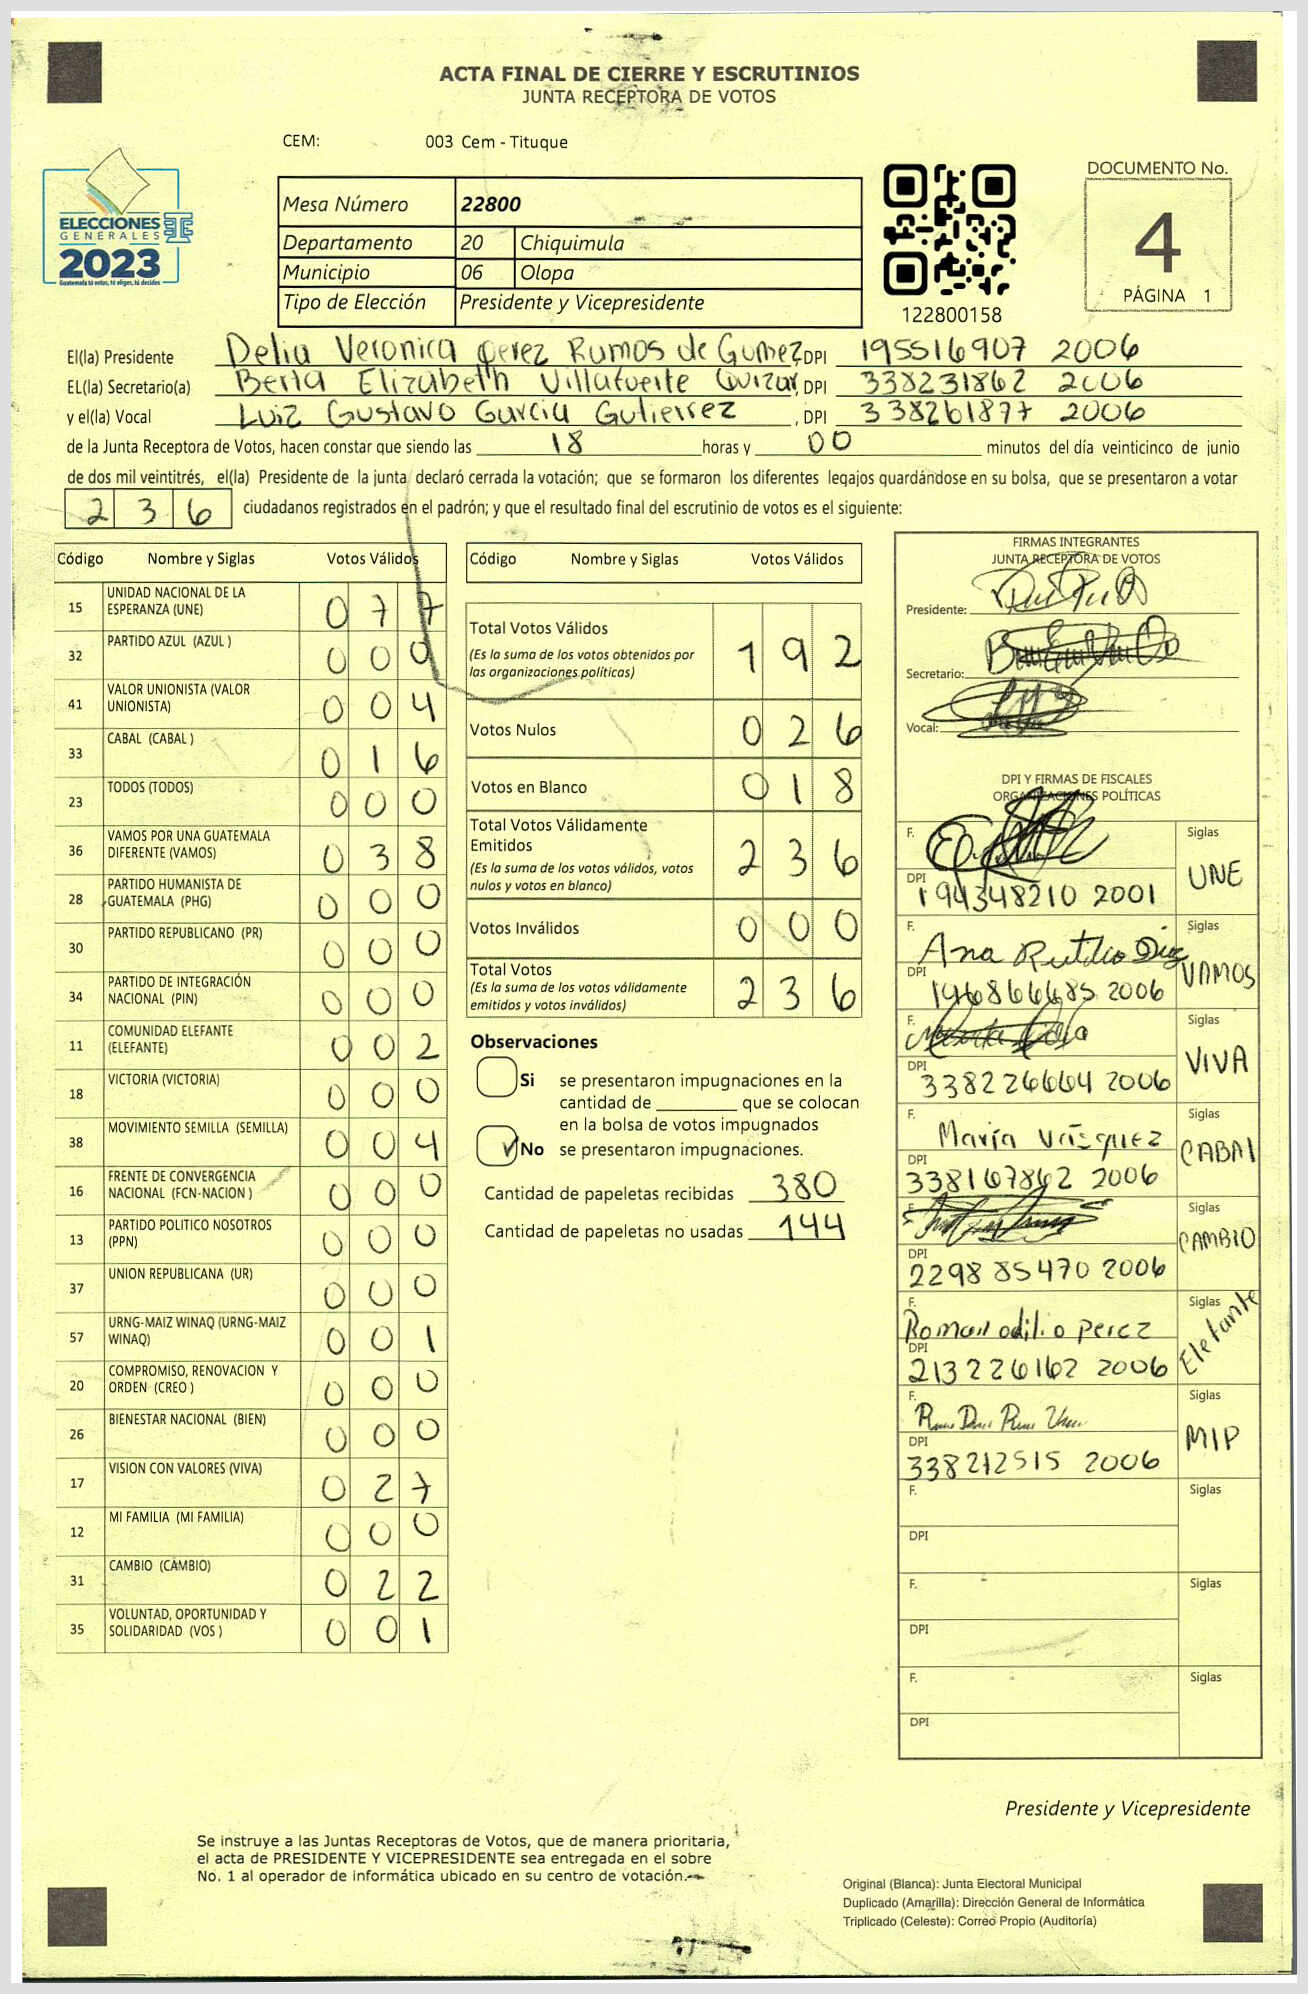 ACTA FINAL DE CIERRE Y ESCRUTINIOS
JUNTA RECEPTORA DE VOTOS
CEM: 003 Cem - Tituque
ELECCIONES
GENERALES
2023
Guatemala tú votas, tú eliges, tú decides
Mesa Número 22800
Departamento 20 Chiquimula
Municipio 06 Olopa
Tipo de Elección Presidente y Vicepresidente
122800158
DOCUMENTO No.
4
PÁGINA 1
El(la) Presidente Delia Veronica perez Ramos de Gomez, DPI 195516907 2006
EL(la) Secretario(a) Berta Elizabeth Villafuerte Quizar, DPI 338231862 2006
y el(la) Vocal Luiz Gustavo Garcia Gutierrez, DPI 338261877 2006
de la Junta Receptora de Votos, hacen constar que siendo las 18 horas y 00 minutos del día veinticinco de junio
de dos mil veintitrés, el(la) Presidente de la junta declaró cerrada la votación; que se formaron los diferentes legajos quardándose en su bolsa, que se presentaron a votar
236 ciudadanos registrados en el padrón; y que el resultado final del escrutinio de votos es el siguiente:
Código Nombre y Siglas Votos Válidos
15 UNIDAD NACIONAL DE LA ESPERANZA (UNE) 077
32 PARTIDO AZUL (AZUL ) 000
41 VALOR UNIONISTA (VALOR UNIONISTA) 004
33 CABAL (CABAL ) 016
23 TODOS (TODOS) 000
36 VAMOS POR UNA GUATEMALA DIFERENTE (VAMOS) 038
28 PARTIDO HUMANISTA DE GUATEMALA (PHG) 000
30 PARTIDO REPUBLICANO (PR) 000
34 PARTIDO DE INTEGRACIÓN NACIONAL (PIN) 000
11 COMUNIDAD ELEFANTE (ELEFANTE) 002
18 VICTORIA (VICTORIA) 000
38 MOVIMIENTO SEMILLA (SEMILLA) 004
16 FRENTE DE CONVERGENCIA NACIONAL (FCN-NACION ) 000
13 PARTIDO POLITICO NOSOTROS (PPN) 000
37 UNION REPUBLICANA (UR) 000
57 URNG-MAIZ WINAQ (URNG-MAIZ WINAQ) 001
20 COMPROMISO, RENOVACION Y ORDEN (CREO ) 000
26 BIENESTAR NACIONAL (BIEN) 000
17 VISION CON VALORES (VIVA) 027
12 MI FAMILIA (MI FAMILIA) 000
31 CAMBIO (CAMBIO) 022
35 VOLUNTAD, OPORTUNIDAD Y SOLIDARIDAD (VOS ) 001
Código Nombre y Siglas Votos Válidos
Total Votos Válidos 192
(Es la suma de los votos obtenidos por
las organizaciones políticas)
Votos Nulos 026
Votos en Blanco 018
Total Votos Válidamente
Emitidos 236
(Es la suma de los votos válidos, votos
nulos y votos en blanco)
Votos Inválidos 000
Total Votos 236
(Es la suma de los votos válidamente
emitidos y votos inválidos)
Observaciones
Si se presentaron impugnaciones en la
cantidad de ________ que se colocan
en la bolsa de votos impugnados
No se presentaron impugnaciones.
Cantidad de papeletas recibidas 380
Cantidad de papeletas no usadas 144
FIRMAS INTEGRANTES
JUNTA RECEPTORA DE VOTOS
Presidente:
Secretario:
Vocal:
DPI Y FIRMAS DE FISCALES
ORGANIZACIONES POLÍTICAS
F. Siglas
DPI 194348210 2001 UNE
F. Ana Ruth Siglas
DPI 2006 VAMOS
F. Siglas
DPI 338226664 2006 VIVA
F. María Vásquez Siglas
DPI 338167862 2006 CABAL
F. Siglas
DPI 229885470 2006 CAMBIO
F. Roman odilio perez Siglas
DPI 213226162 2006 Elefante
F. Siglas
DPI 338212515 2006 MIP
F. Siglas
DPI
F. Siglas
DPI
F. Siglas
DPI
Presidente y Vicepresidente
Se instruye a las Juntas Receptoras de Votos, que de manera prioritaria,
el acta de PRESIDENTE Y VICEPRESIDENTE sea entregada en el sobre
No. 1 al operador de informática ubicado en su centro de votación.
Original (Blanca): Junta Electoral Municipal
Duplicado (Amarilla): Dirección General de Informática
Triplicado (Celeste): Correo Propio (Auditoría)